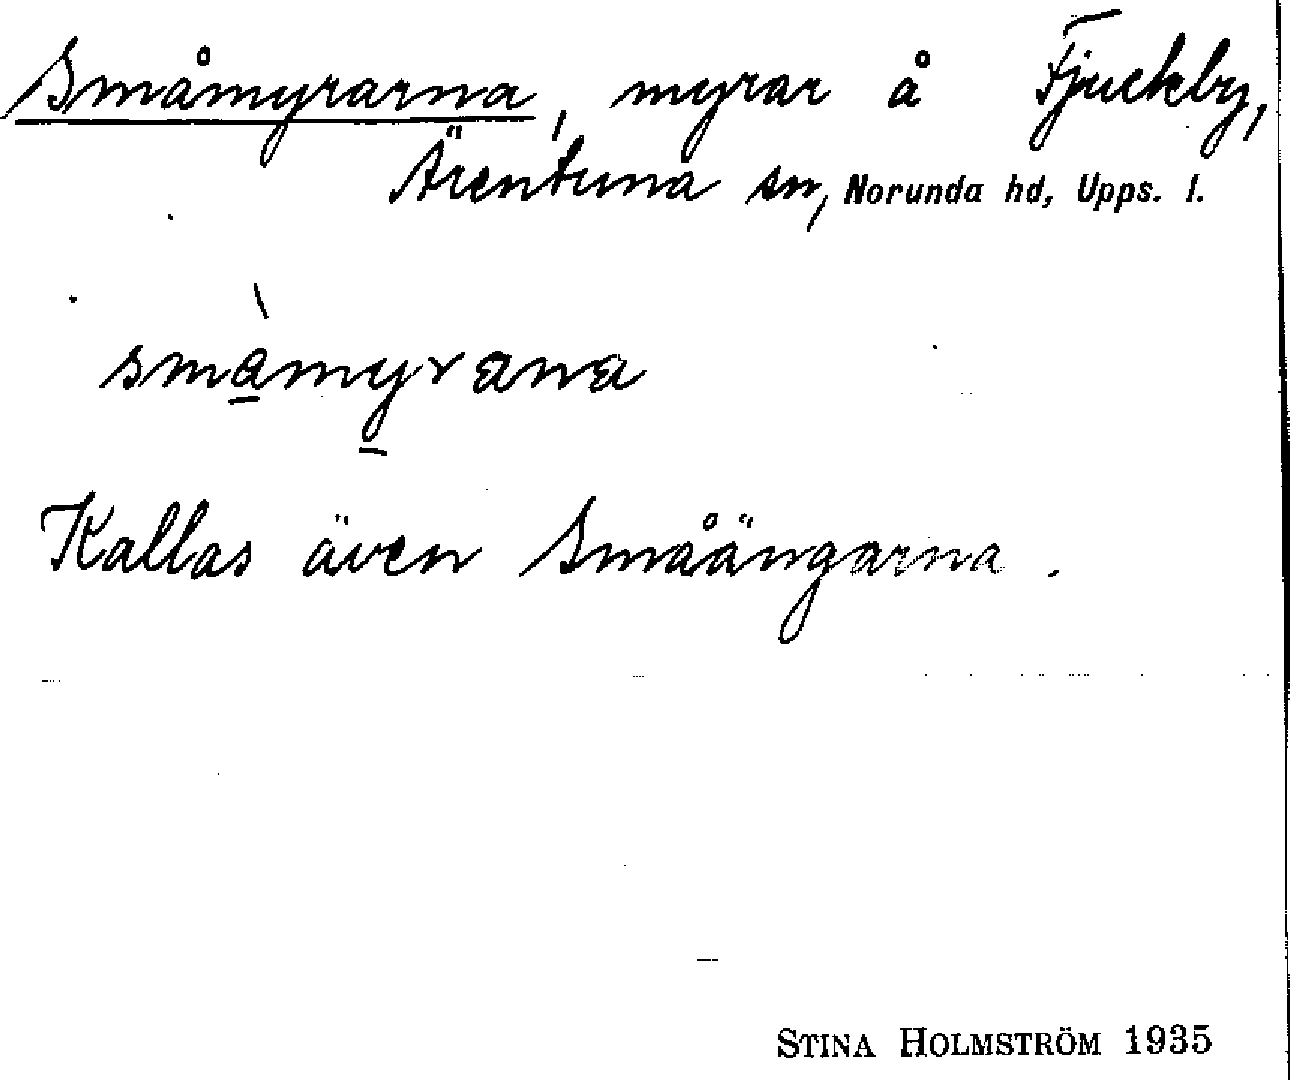 Småmyrarna, myrar å Fjuckby,
Ärentuna sn, Norunda hd, Upps. l.
smàmyrana
Kallas även Småängarna.
STINA HOLMSTRÖM 1935